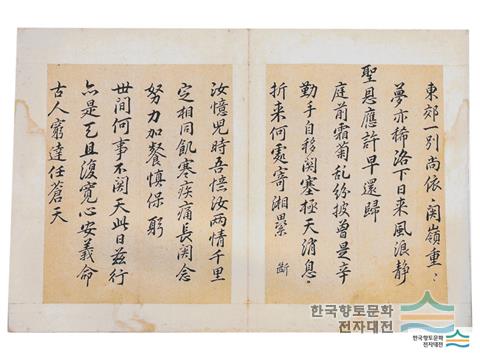 東郊一別尚依〻関嶺重〻
夢亦稀洛下日来風浪静
聖恩應許早還歸
庭前霜菊乱紛披曽是辛
勤手自移関塞極天消息〻
折来何處寄湘纍 斷
汝憶兒時吾憶汝两情千里
定相同飢寒疾痛長関念
努力加餐慎保躬
世間何事不関天此日茲行
亦是天且復寛心安義命
古人窮達任蒼天
한국향토문화
전자대전
한국향토문화
전자대전